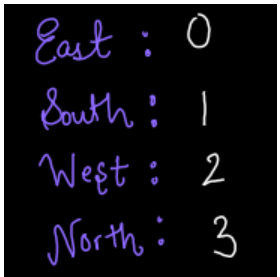 East : 0
South : 1
West : 2
North : 3